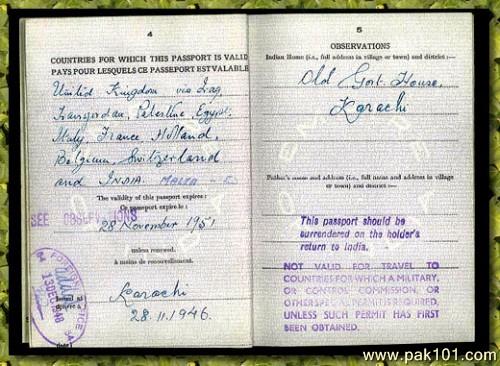 4
COUNTRIES FOR WHICH THIS PASSPORT IS VALID
PAYS POUR LESQUELS CE PASSEPORT EST VALABLE
United Kingdom via Iraq,
Transjordan, Palestine, Egypt,
Italy, France, Holland,
Belgium, Switzerland
and INDIA. MALTA
The validity of this passport expires:
Ce passeport expire le:
SEE OBSERVATIONS
28 November 1951
unless renewed.
à moins de renouvellement.
Issued at
Karachi
28.11.1946.
13 DEC 1946
5
OBSERVATIONS
Indian Home (i.e., full address in village
or town) and district:—
Old Govt. House,
Karachi
Father's name and address (i.e., full name and address in village
or town) and district:—
This passport should be
surrendered on the holder's
return to India.
NOT VALID FOR TRAVEL TO
COUNTRIES FOR WHICH A MILITARY,
OR CONTROL COMMISSION, OR
OTHER SPECIAL PERMIT IS REQUIRED,
UNLESS SUCH PERMIT HAS FIRST
BEEN OBTAINED.
www.pak101.com